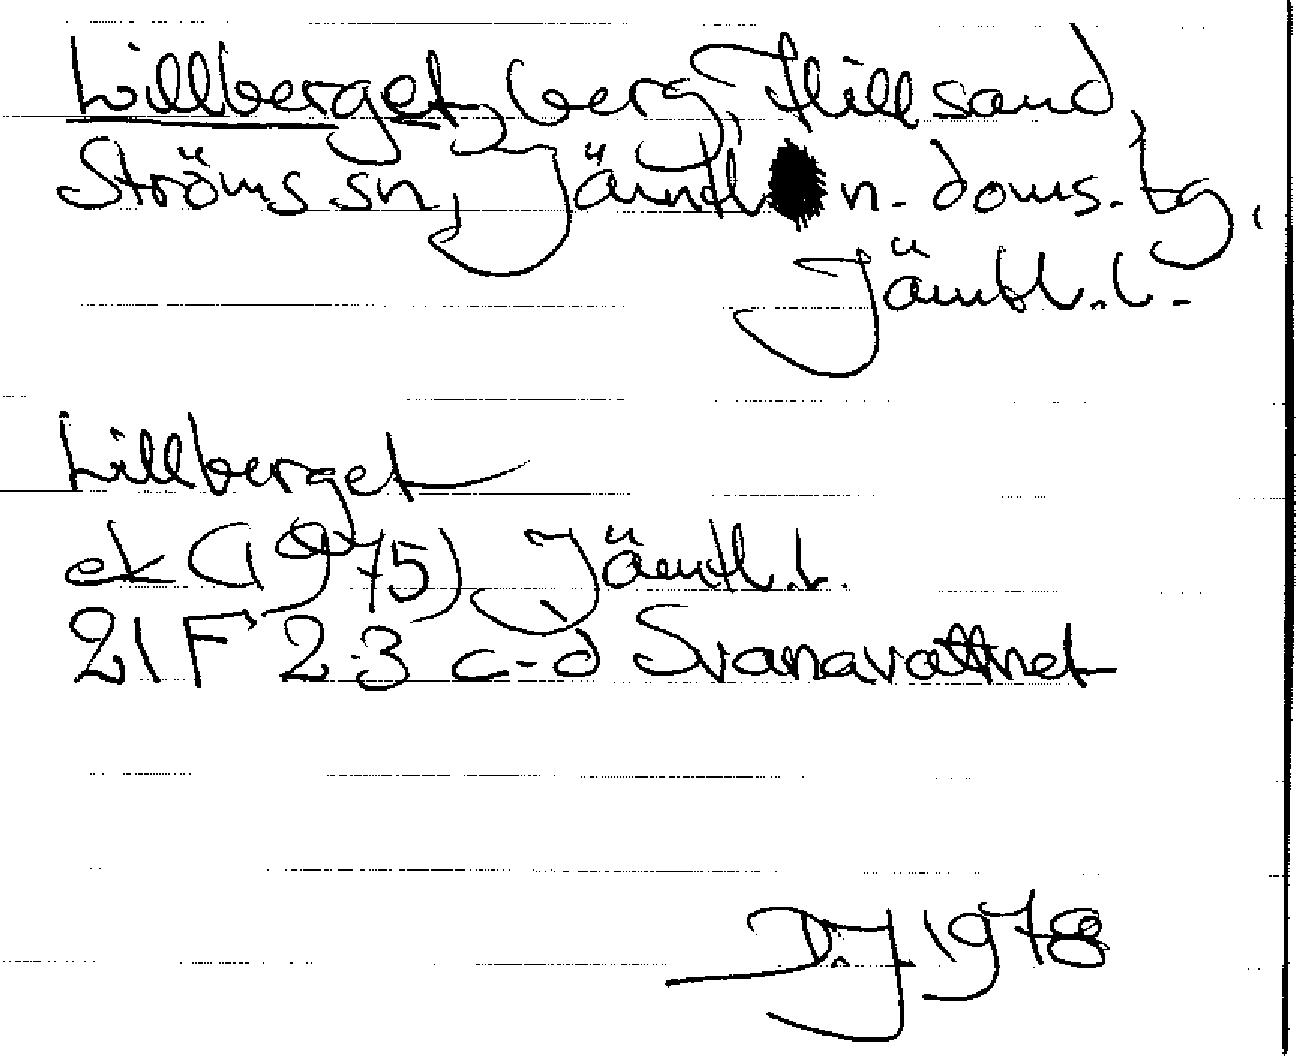 Lillberget, berg, Hillsand,
Ströms sn, Jämtl. n. doms.-tg,
Jämtl. l.
Lillberget
ek (1975) Jämtl. l.
21 F 2-3 c-d Svanavattnet
D.J. 1978